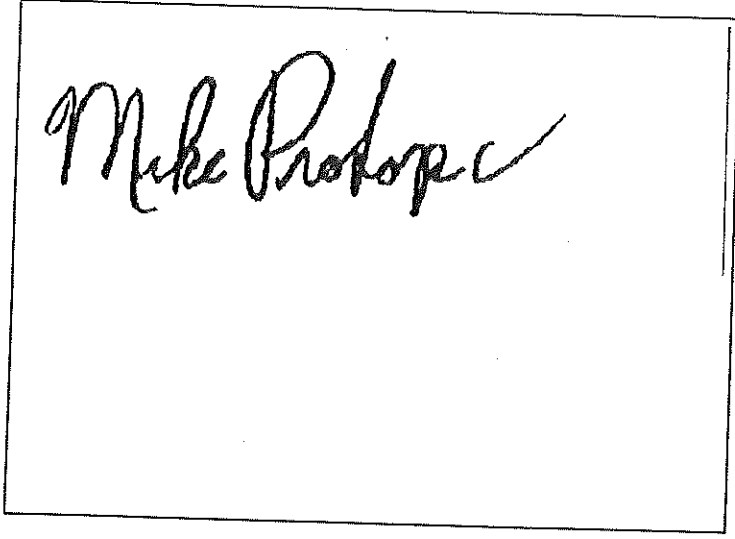 Mike Prokopc